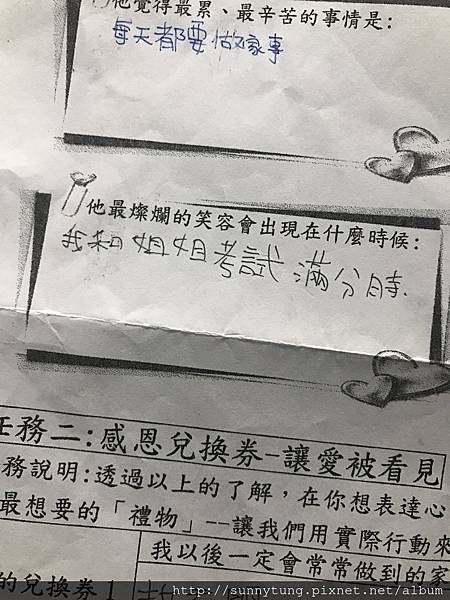 他覺得最累、最辛苦的事情是:
每天都要做家事
他最燦爛的笑容會出現在什麼時候:
我和姐姐考試滿分時.
任務二:感恩兌換券-讓愛被看見
務說明:透過以上的了解,在你想表達心
最想要的「禮物」--讓我們用實際行動來
我以後一定會常常做到的家
的兌換券1
http://sunnytung.pixnet.net/album